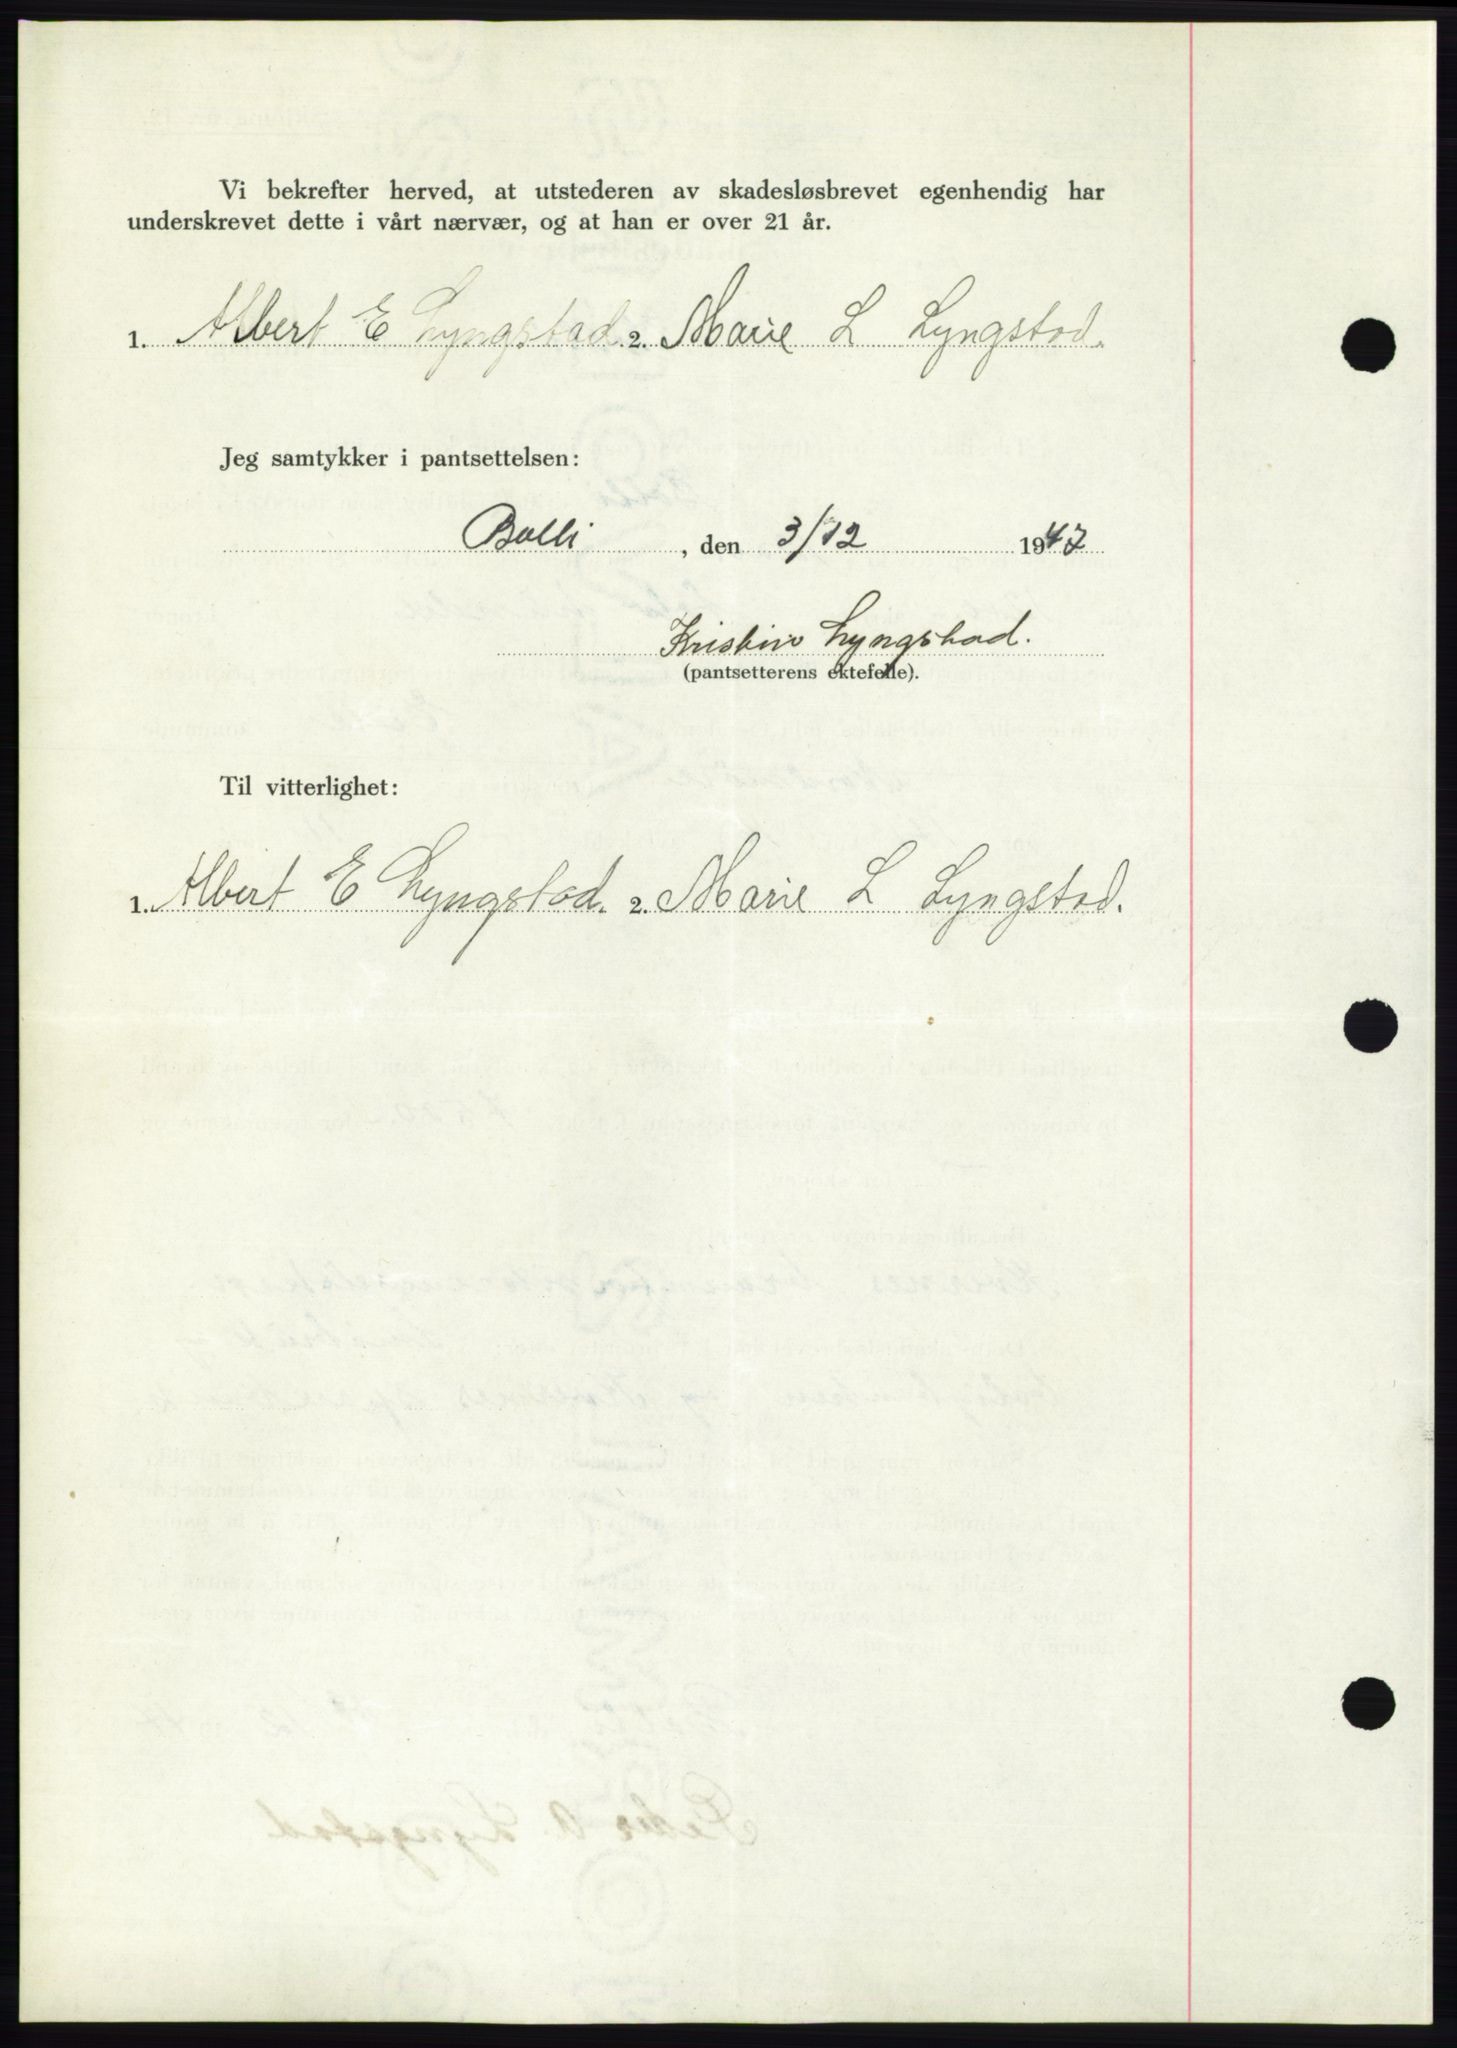 Vi bekrefter herved, at utstederen av skadesløsbrevet egenhendig har
underskrevet dette i vårt nærvær, og at han er over 21 år.
1. Albert E Lyngstad 2. Marie L Lyngstad.
Jeg samtykker i pantsettelsen:
Bolli, den 3/12 1947
Kristine Lyngstad.
(pantsetterens ektefelle).
Til vitterlighet:
1. Albert E Lyngstad. 2. Marie L Lyngstad.